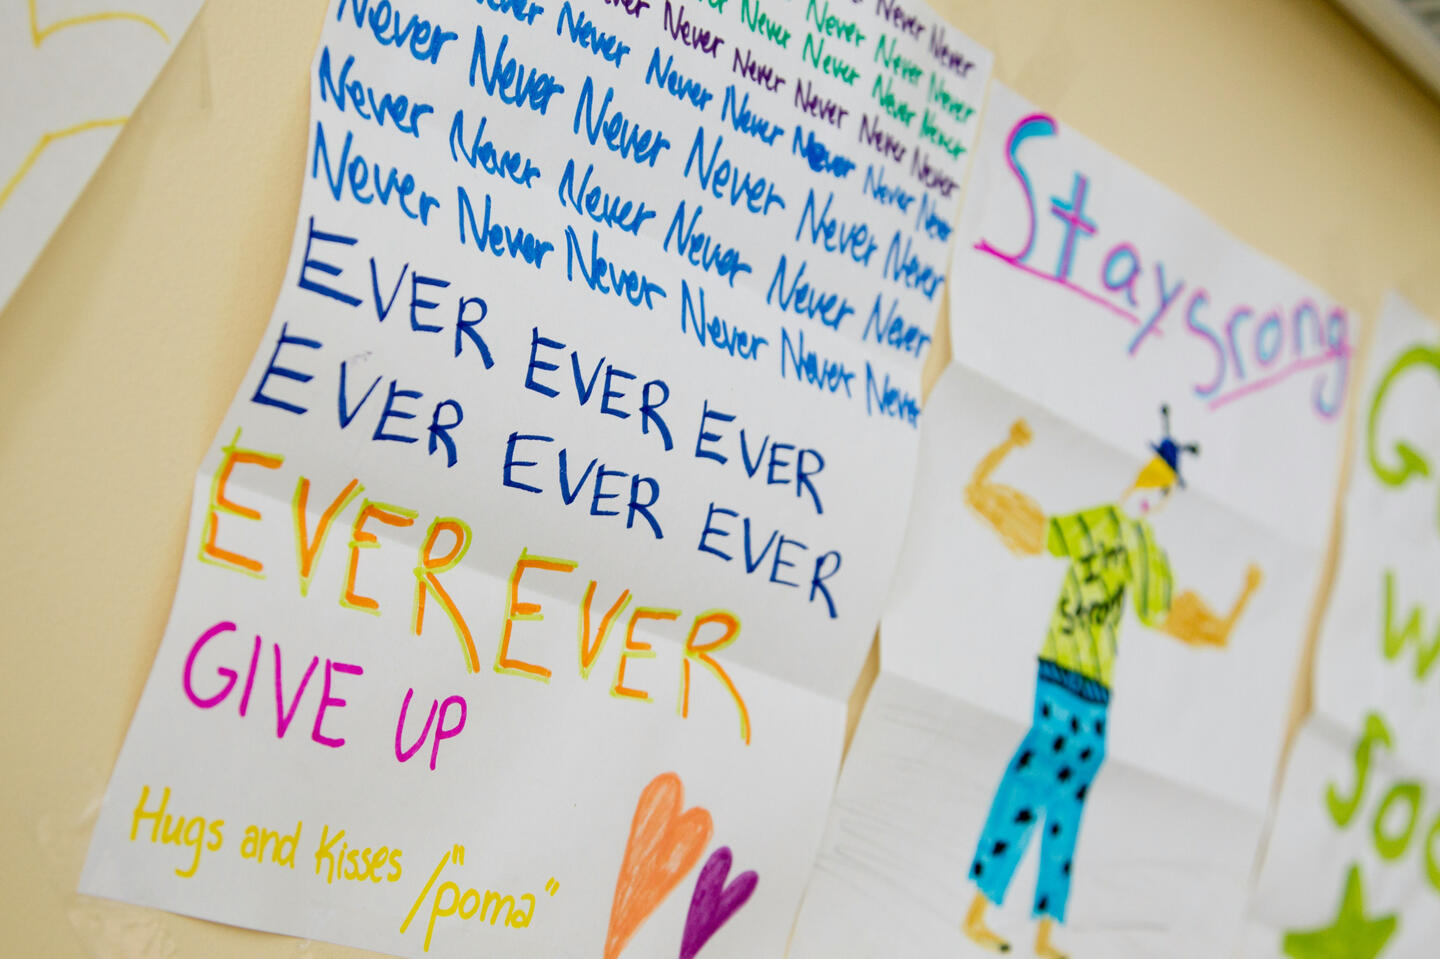 Never Never
Never Never Never
Never Never Never Never
Never Never Never Never Never Never
Never Never Never Never Never Never Never
Never Never Never Never Never Never
Never Never Never Never Never Never
Never Never Never Never Never Never
EVER EVER EVER
EVER EVER EVER
EVER EVER
GIVE UP
Hugs and Kisses /"poma"
Stay Srong
I'm
strong
G
W